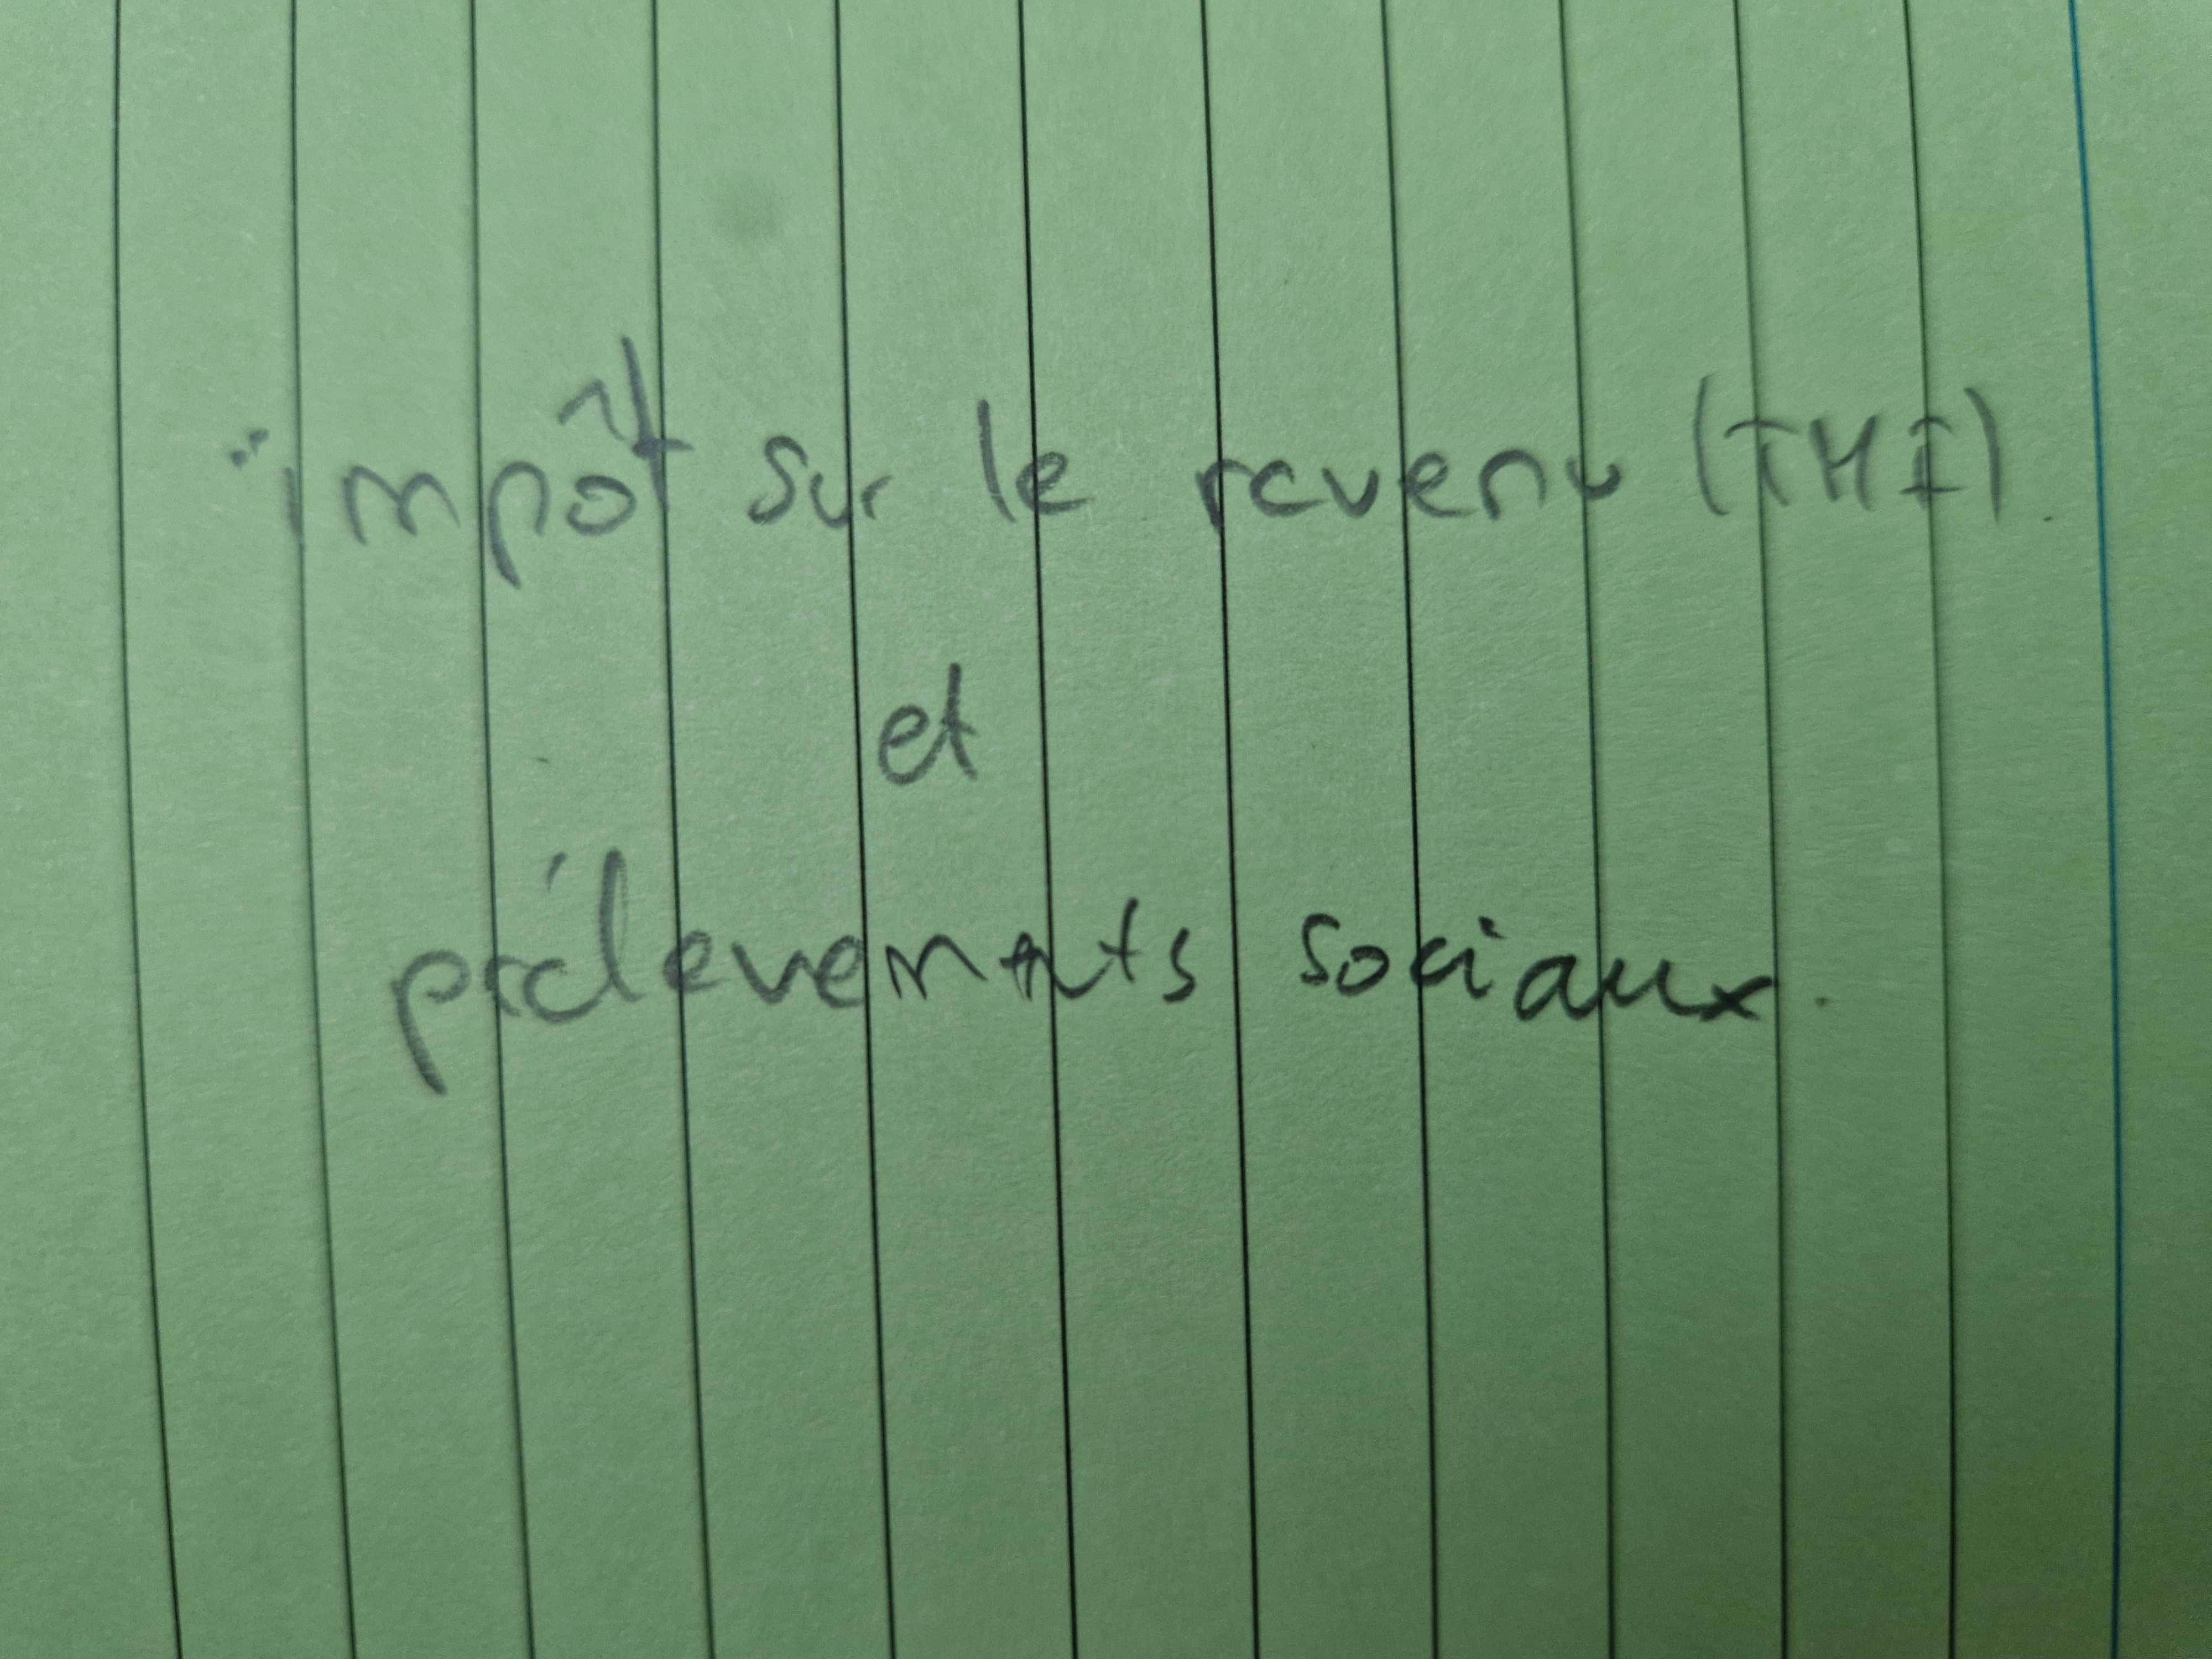 impôt sur le revenu (TMI).
et
prélevements sociaux.